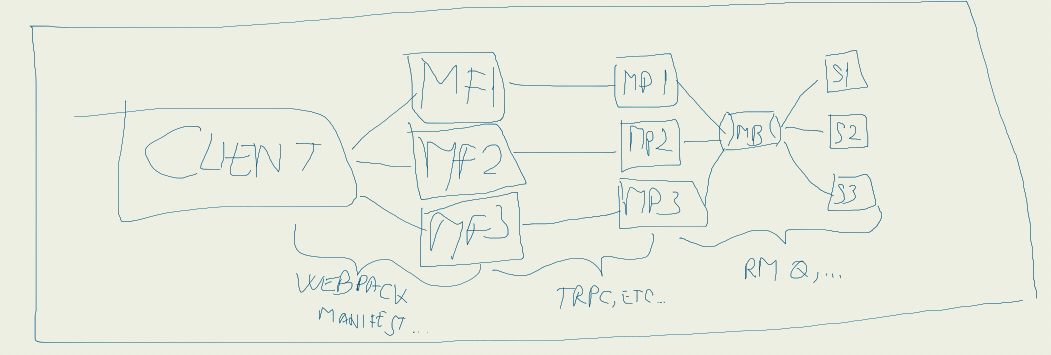 CLIENT
MF1
MF2
MF3
MP1
MP2
MP3
MB
S1
S2
S3
WEBPACK
MANIFEST...
TRPC, ETC...
RMQ,...